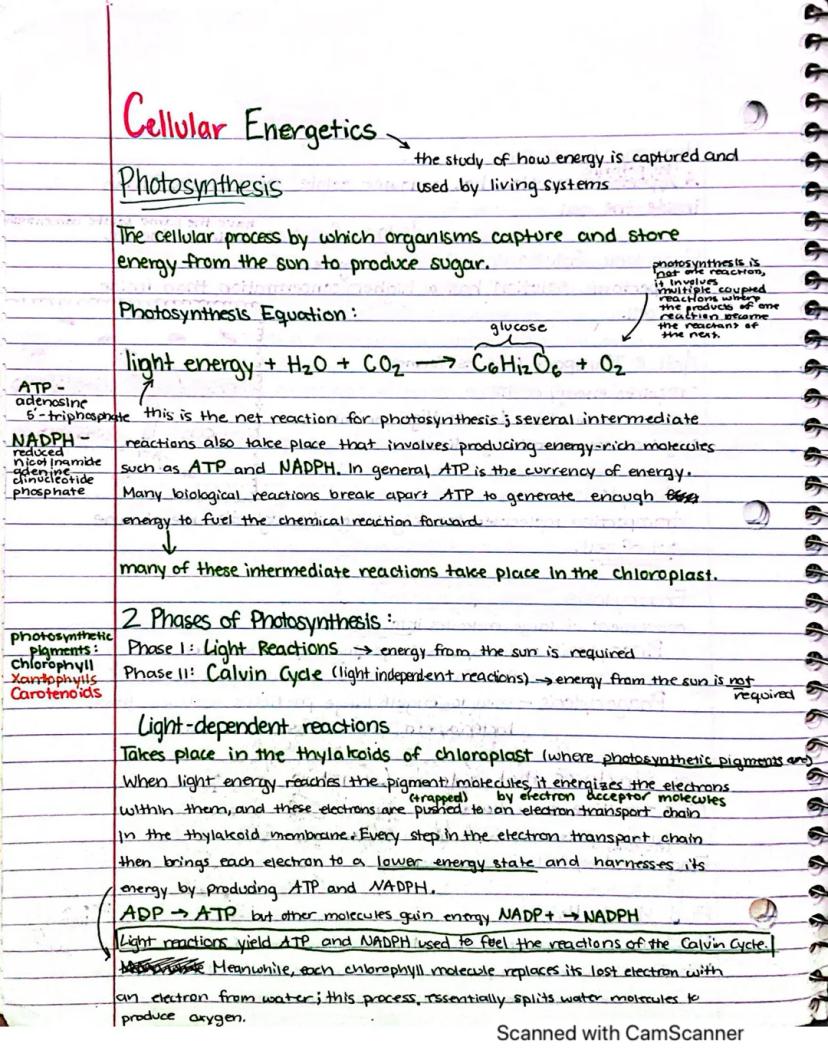 Cellular Energetics
the study of how energy is captured and
used by living systems
Photosynthesis
The cellular process by which organisms capture and store
energy from the sun to produce sugar.
photosynthesis is
not one reaction,
it involves
multiple coupled
reactions where
the products of one
reaction become
the reactant of
the next.
Photosynthesis Equation:
glucose
light energy + H₂O + CO₂ → C₆H₁₂O₆ + O₂
ATP -
adenosine
5'-triphosphate
NADPH -
reduced
nicotinamide
adenine
dinucleotide
phosphate
this is the net reaction for photosynthesis; several intermediate
reactions also take place that involves producing energy-rich molecules
such as ATP and NADPH. In general, ATP is the currency of energy.
Many biological reactions break apart ATP to generate enough
energy to fuel the chemical reaction forward
many of these intermediate reactions take place in the chloroplast.
2 Phases of Photosynthesis:
photosynthetic
pigments:
Chlorophyll
Xantophylls
Carotenoids
Phase I: Light Reactions → energy from the sun is required
Phase II: Calvin Cycle (light independent reactions) → energy from the sun is not
required
Light-dependent reactions
Takes place in the thylakoids of chloroplast (where photosynthetic pigments are)
When light energy reaches the pigment molecules, it energizes the electrons
(trapped) by electron acceptor molecules
within them, and these electrons are pushed to an electron transport chain
in the thylakoid membrane. Every step in the electron transport chain
then brings each electron to a lower energy state and harnesses its
energy by producing ATP and NADPH.
ADP → ATP but other molecules gain energy NADP+ → NADPH
Light reactions yield ATP and NADPH used to fuel the reactions of the Calvin Cycle.
Meanwhile, each chlorophyll molecule replaces its lost electron with
an electron from water; this process, essentially splits water molecules to
produce oxygen.
Scanned with CamScanner